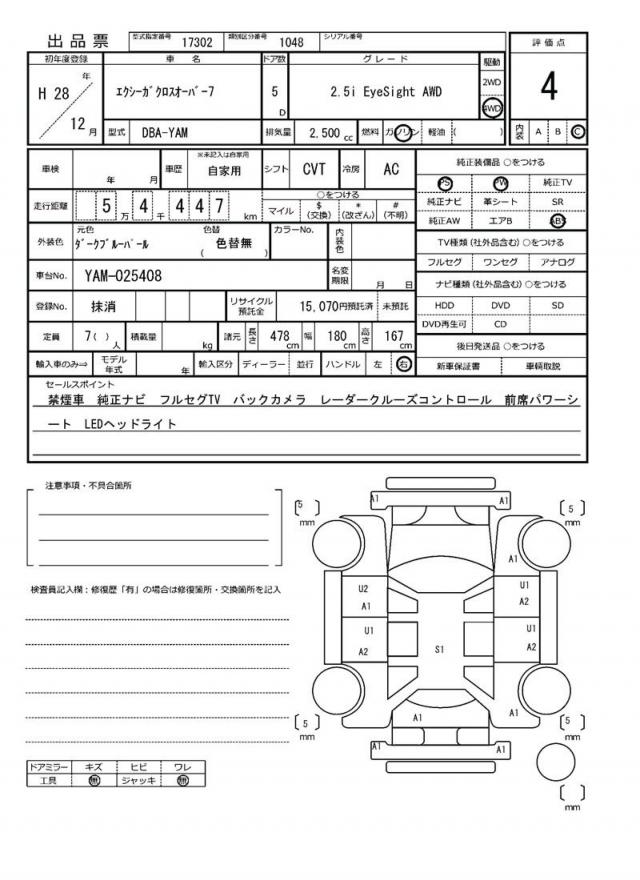 出品票 型式指定番号 17302 類別区分番号 1048 シリアル番号
初年度登録 車名 ドア数 グレード 駆動 評価点
H 28 年 12 月 エクシーガクロスオーバー7 5 D 2.5i EyeSight AWD 2WD 4WD 4
型式 DBA-YAM 排気量 2,500 cc 燃料 ガソリン 軽油 ( ) 内装 A B C
車検 年 月 車歴 ※未記入は自家用 自家用 シフト CVT 冷房 AC 純正装備品 ○をつける
PS PW 純正TV
走行距離 5 万 4 千 4 4 7 km ○をつける 純正ナビ 革シート SR
マイル $(交換) *(改ざん) #(不明) 純正AW エアB ABS
外装色 元色 ダークブルーパール 色替 色替無 ( ) カラーNo. 内装色 TV種類(社外品含む) ○をつける
フルセグ ワンセグ アナログ
車台No. YAM-025408 名変期限 月 日 ナビ種類(社外品含む) ○をつける
登録No. 抹消 リサイクル預託金 15,070円預託済 未預託 HDD DVD SD
DVD再生可 CD
定員 7( ) 人 積載量 kg 諸元 長さ 478 cm 幅 180 cm 高さ 167 cm 後日発送品 ○をつける
輸入車のみ⇒ モデル年式 年 輸入区分 ディーラー 並行 ハンドル 左 右 新車保証書 車輌取説
セールスポイント
禁煙車 純正ナビ フルセグTV バックカメラ レーダークルーズコントロール 前席パワーシ
ート LEDヘッドライト
注意事項・不具合箇所
検査員記入欄：修復歴「有」の場合は修復箇所・交換箇所を記入
A1 A1
5 mm 5 mm
A1
U2 U1
A1 A2
U1 U1
A2 S1 A2
A1 A1
5 mm 5 mm
A1 A1
mm
ドアミラー キズ ヒビ ワレ
工具 無 ジャッキ 無